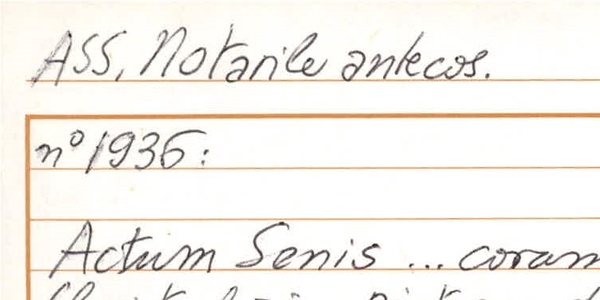 ASS, Notarile antecos.
n° 1936:
Actum Senis ... coram